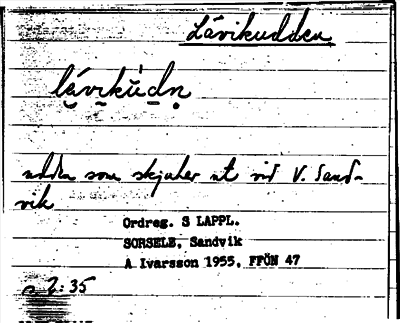 Lövikudden
lǫ́vi̱kùdn̥
udden som skjuter ut vid V. Sand-
vik
Ordreg. S LAPPL.
SORSELE, Sandvik
A Ivarsson 1955, FFÖN 47
2:35